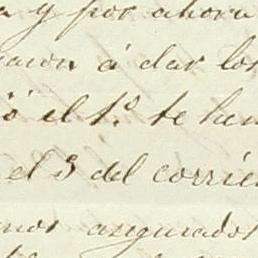 a y por ahora
caron á dar los
ó el 1º te hem
el 3 del corrie
mos asegurados